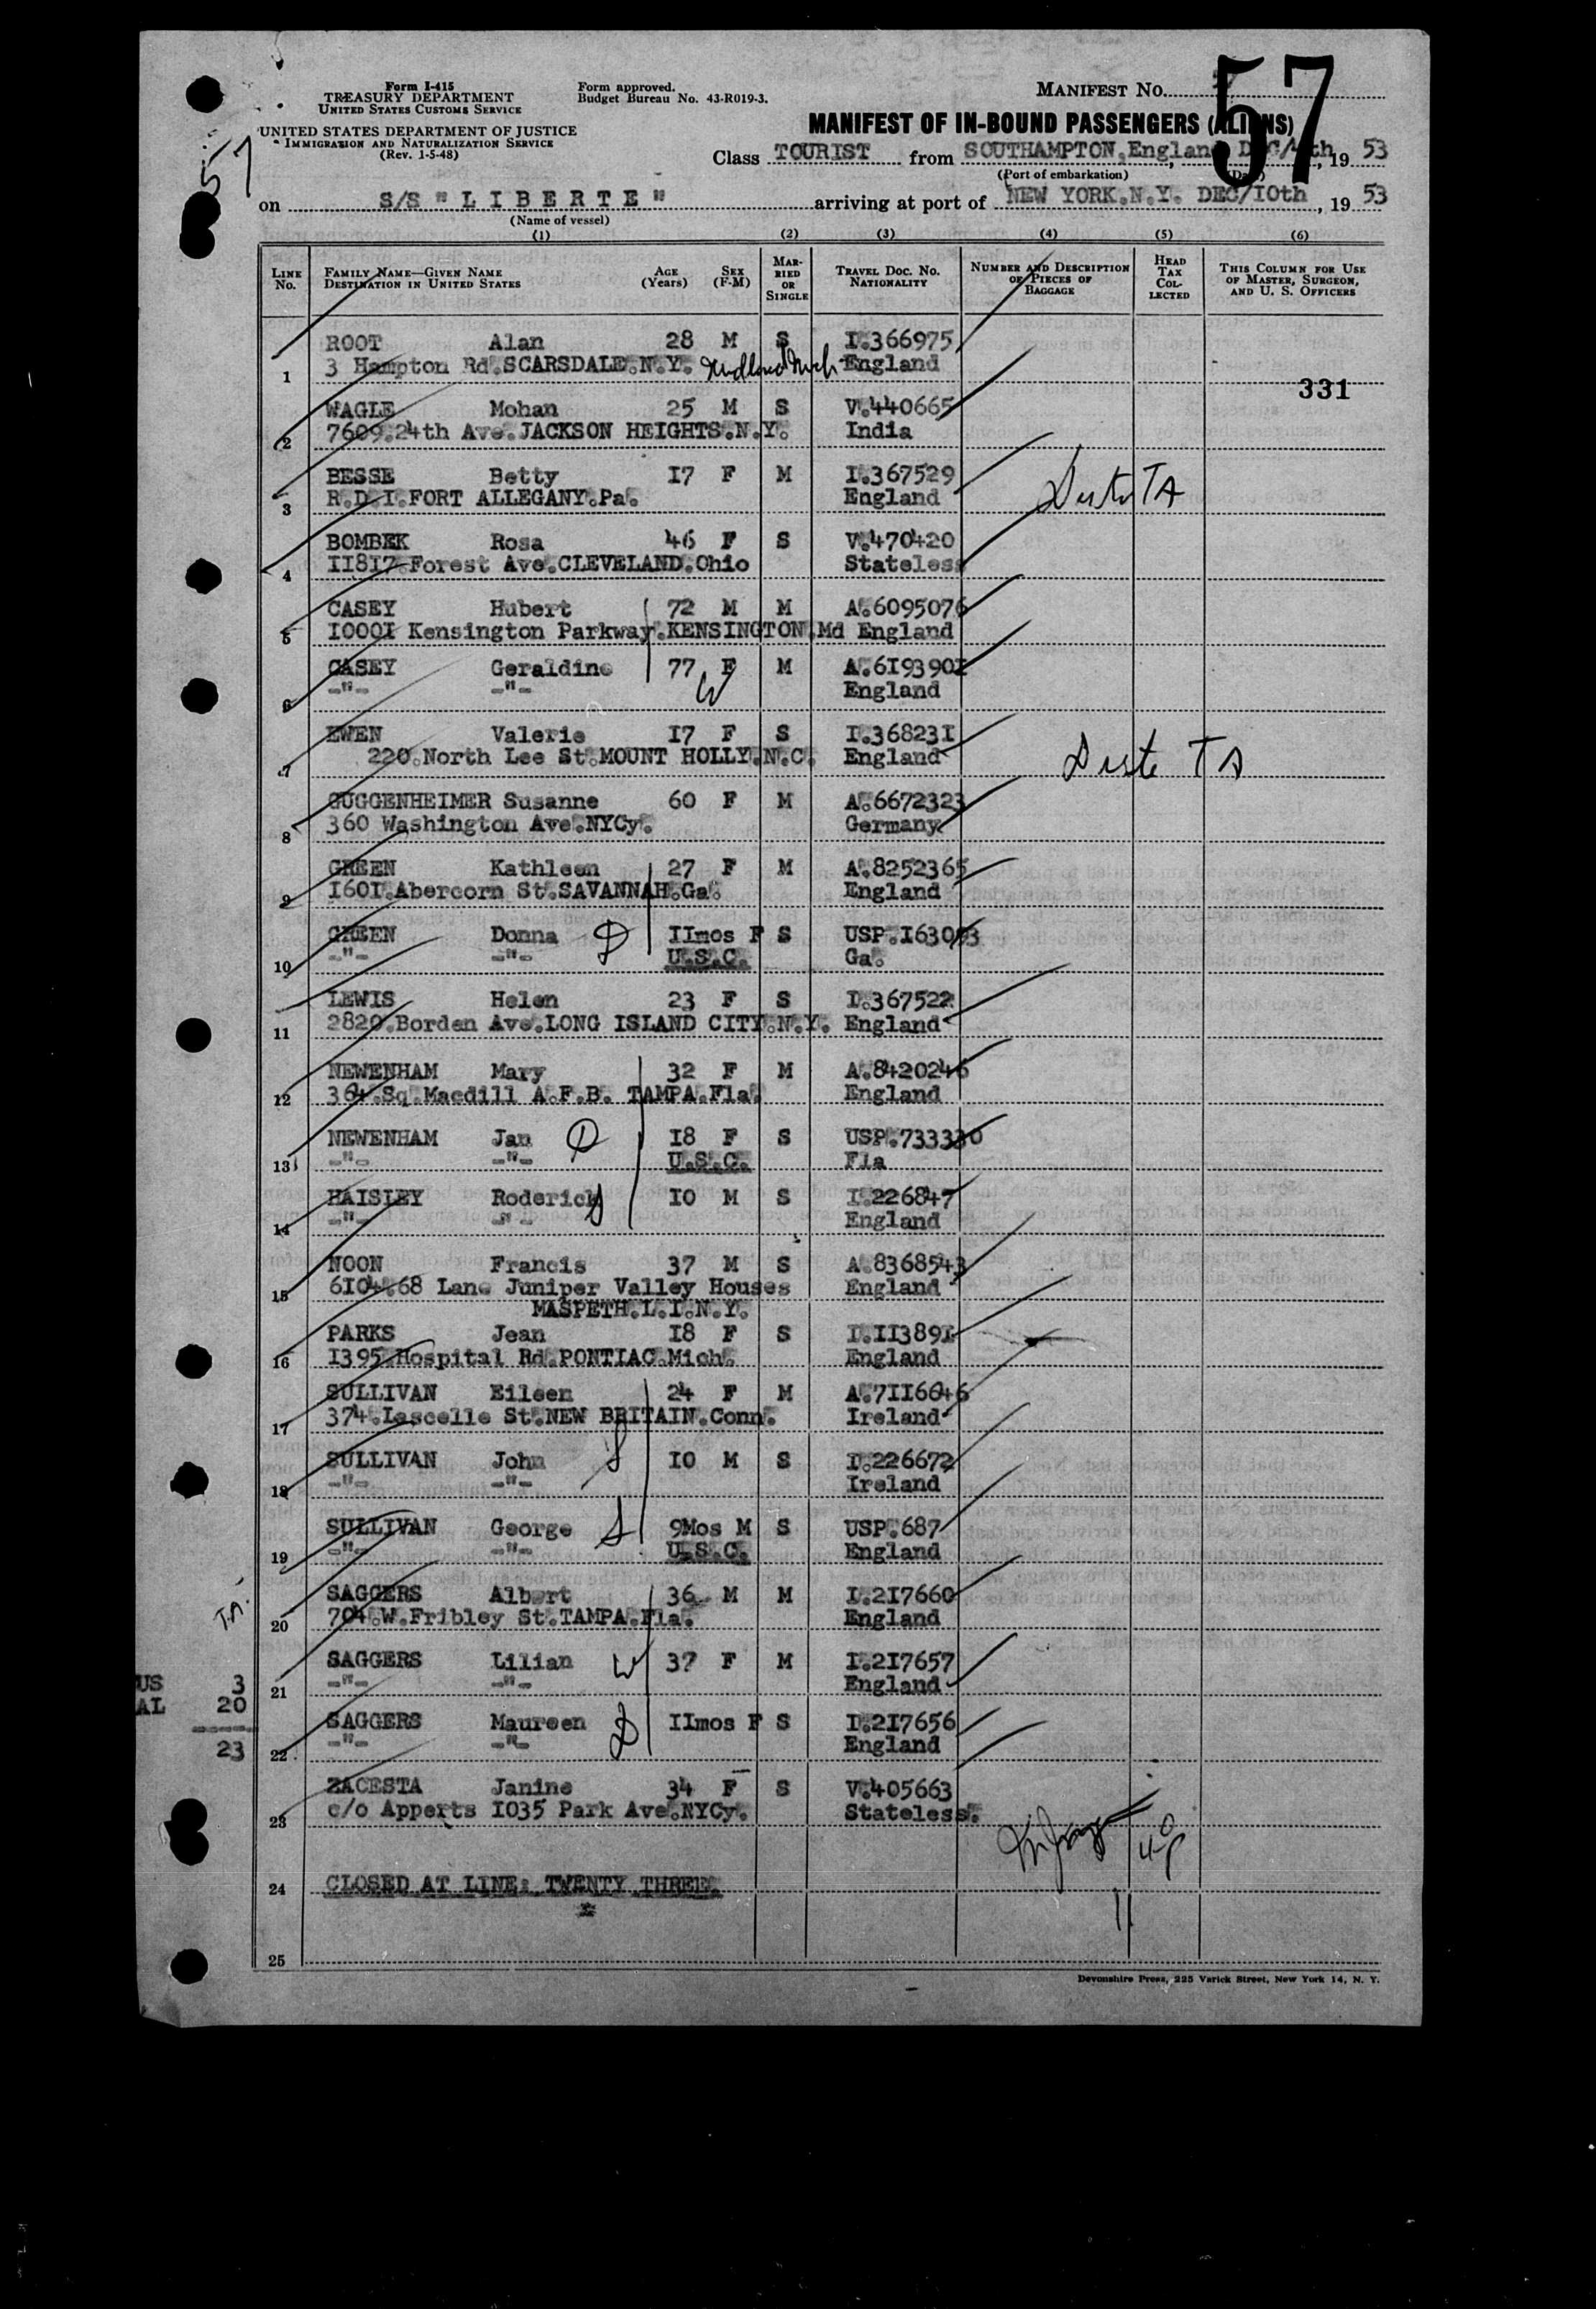 Form I-415
TREASURY DEPARTMENT
UNITED STATES CUSTOMS SERVICE
Form approved.
Budget Bureau No. 43-R019-3.
MANIFEST NO.
57
UNITED STATES DEPARTMENT OF JUSTICE
IMMIGRATION AND NATURALIZATION SERVICE
(Rev. 1-5-48)
57
MANIFEST OF IN-BOUND PASSENGERS (ALIENS)
Class TOURIST from SOUTHAMPTON.England, DEC/4th, 19 53
(Port of embarkation) (Date)
on S/S "LIBERTE" arriving at port of NEW YORK.N.Y. DEC/I0th, 19 53
(Name of vessel)
(1) (2) (3) (4) (5) (6)
LINE NO. FAMILY NAME—GIVEN NAME DESTINATION IN UNITED STATES AGE (Years) SEX (F-M) MARRIED OR SINGLE TRAVEL DOC. NO. NATIONALITY NUMBER AND DESCRIPTION OF PIECES OF BAGGAGE HEAD TAX COLLECTED THIS COLUMN FOR USE OF MASTER, SURGEON, AND U. S. OFFICERS
ROOT Alan 28 M S I.366975
1 3 Hampton Rd.SCARSDALE.N.Y. Midland Mich England
331
WAGLE Mohan 25 M S V.440665
2 7609.24th Ave.JACKSON HEIGHTS.N.Y. India
BESSE Betty I7 F M I.367529
3 R.D.I.FORT ALLEGANY.Pa. England TA
BOMBEK Rosa 46 F S V.470420
4 II8I7.Forest Ave.CLEVELAND.Ohio Stateless
CASEY Hubert 72 M M A.6095076
5 I000I Kensington Parkway.KENSINGTON.Md England
CASEY Geraldine 77 F M A.6I9390I
6 -"- -"- W England
EWEN Valerie I7 F S I.36823I
7 220.North Lee St.MOUNT HOLLY.N.C. England TA
GUGGENHEIMER Susanne 60 F M A.6672323
8 360 Washington Ave.NYCy. Germany
GREEN Kathleen 27 F M A.8252365
9 I60I.Abercorn St.SAVANNAH.Ga. England
GREEN Donna D IImos F S USP.I63093
10 -"- -"- U.S.C. Ga.
LEWIS Helen 23 F S I.367522
11 2820.Borden Ave.LONG ISLAND CITY.N.Y. England
NEWENHAM Mary 32 F M A.8420246
12 364.Sq.Macdill A.F.B. TAMPA.Fla. England
NEWENHAM Jan D I8 F S USP.733330
13 -"- -"- U.S.C. Fla
HAISLEY Roderick I0 M S I.226847
14 -"- -"- England
NOON Francis 37 M S A.8368543
15 6I04.68 Lane Juniper Valley Houses England
MASPETH.L.I.N.Y.
PARKS Jean I8 F S I.II389I
16 I395.Hospital Rd.PONTIAC.Mich. England
SULLIVAN Eileen 24 F M A.7II6646
17 374.Lascelle St.NEW BRITAIN.Conn. Ireland
SULLIVAN John S I0 M S I.226672
18 -"- -"- Ireland
SULLIVAN George S 9Mos M S USP.687
19 -"- -"- U.S.C. England
SAGGERS Albert 36 M M I.2I7660
T.A. 20 704.W.Fribley St.TAMPA.Fla. England
SAGGERS Lilian W 37 F M I.2I7657
21 -"- -"- England
US 3
AL 20
23
SAGGERS Maureen D IImos F S I.2I7656
22 -"- -"- England
ZACESTA Janine 34 F S V.405663
23 c/o Apperts I035 Park Ave.NYCy. Stateless.
24 CLOSED AT LINE: TWENTY THREE.
25
Devonshire Press, 225 Varick Street, New York 14, N. Y.